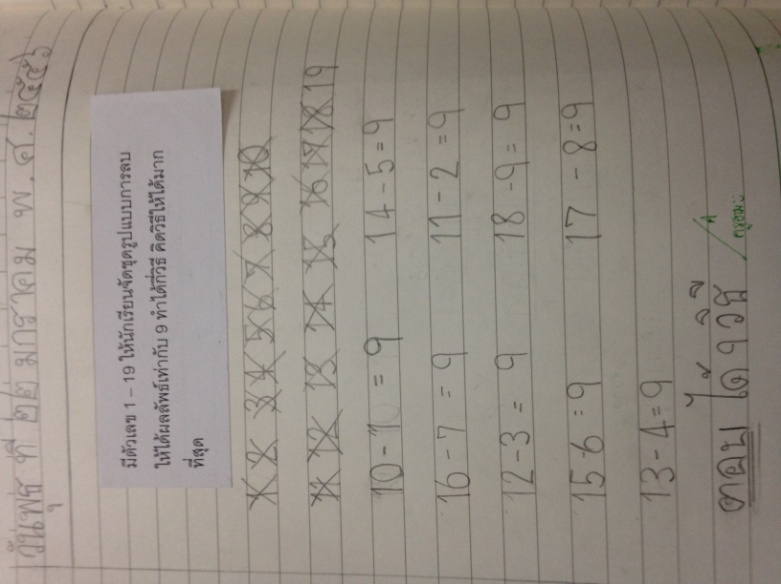 วันพุธ ที่ ๒๒ มกราคม พ.ศ.๒๕๕๖
มีตัวเลข 1 – 19 ให้นักเรียนจัดชุดรูปแบบการลบ
ให้ได้ผลลัพธ์เท่ากับ 9 ทำได้กี่วิธี คิดวิธีให้ได้มาก
ที่สุด
1 2 3 4 5 6 7 8 9 10
11 12 13 14 15 16 17 18 19
10-1 = 9 14-5=9
16-7 = 9 11-2 =9
12-3 = 9 18-9 = 9
15-6=9 17-8=9
13-4=9
ตอบ ได้ ๙ วิธี